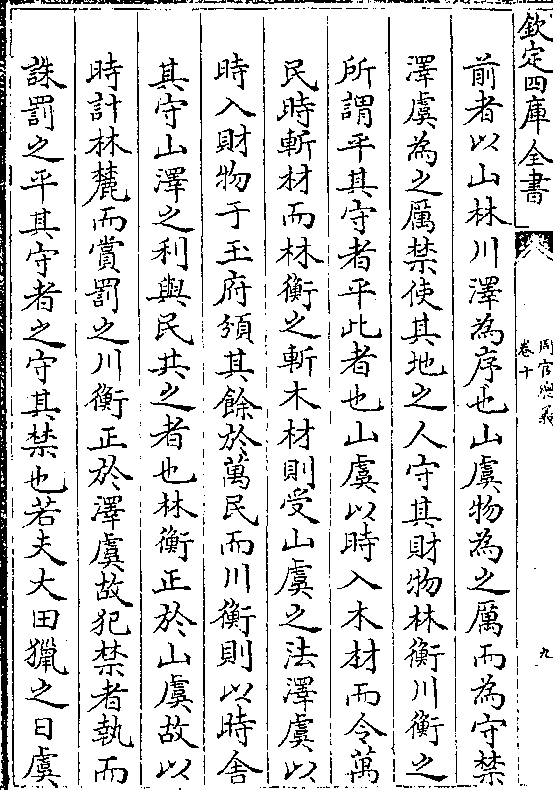 欽定四庫全書
周官總義
卷十
九
前者以山林川澤為序也山虞物為之厲而為守禁
澤虞為之厲禁使其地之人守其財物林衡川衡之
所謂平其守者平此者也山虞以時入木材而令萬
民時斬材而林衡之斬木材則受山虞之法澤虞以
時入財物于玉府頒其餘於萬民而川衡則以時舎
其守山澤之利與民共之者也林衡正於山虞故以
時計林麓而賞罰之川衡正於澤虞故犯禁者執而
誅罰之平其守者之守其禁也若夫大田獵之日虞